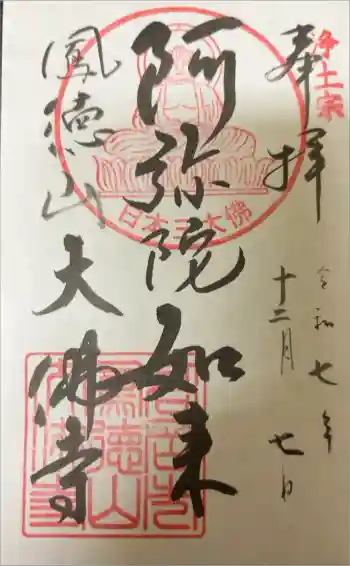 浄土宗
奉拝
令和七年
十二月七日
阿弥陀如来
日本三大佛
鳳徳山
大佛寺